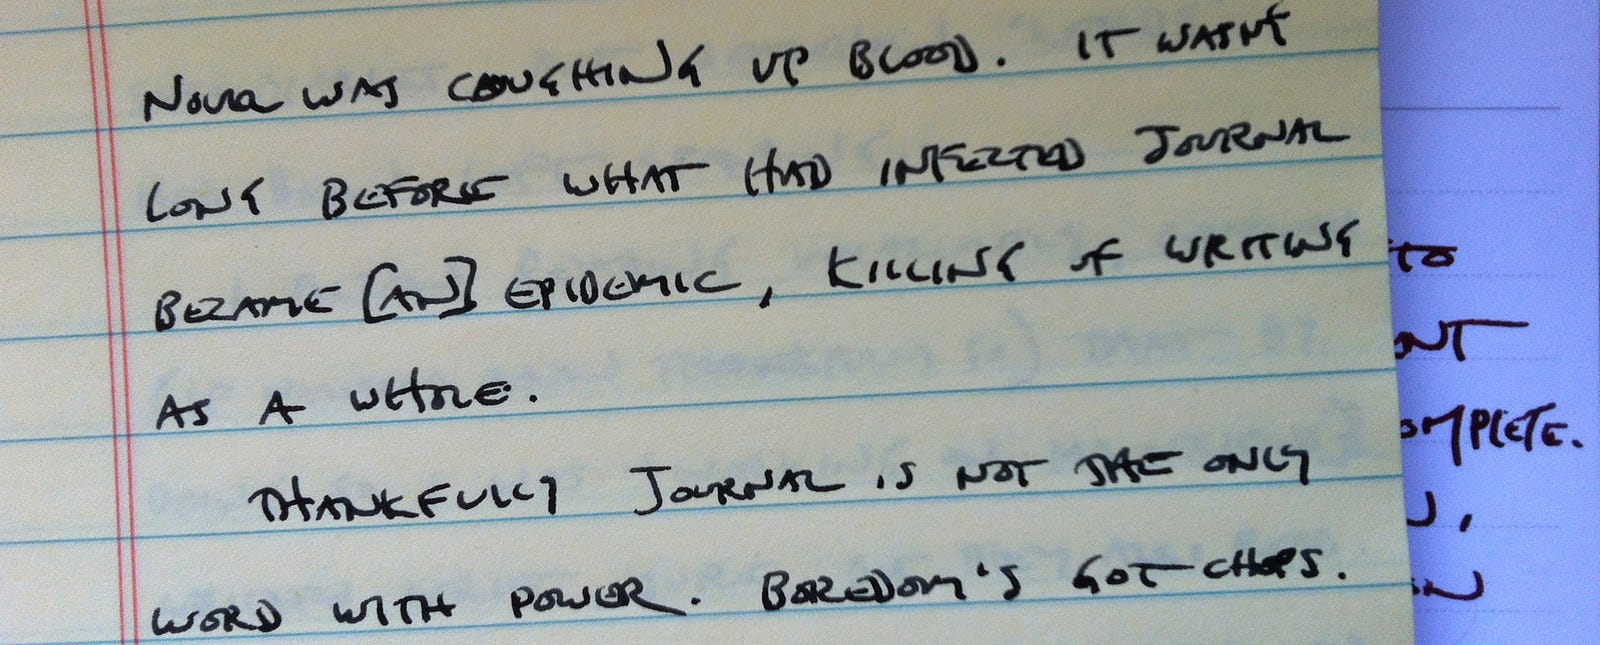 NOUN WAS COUGHING UP BLOOD. IT WASN'T
LONG BEFORE WHAT HAD INFECTED JOURNAL
BECAME [AN] EPIDEMIC, KILLING OF WRITING
AS A WHOLE.
THANKFULLY JOURNAL IS NOT THE ONLY
WORD WITH POWER. BOREDOM'S GOT CHOPS.
TO
ONT
OMPLETE.